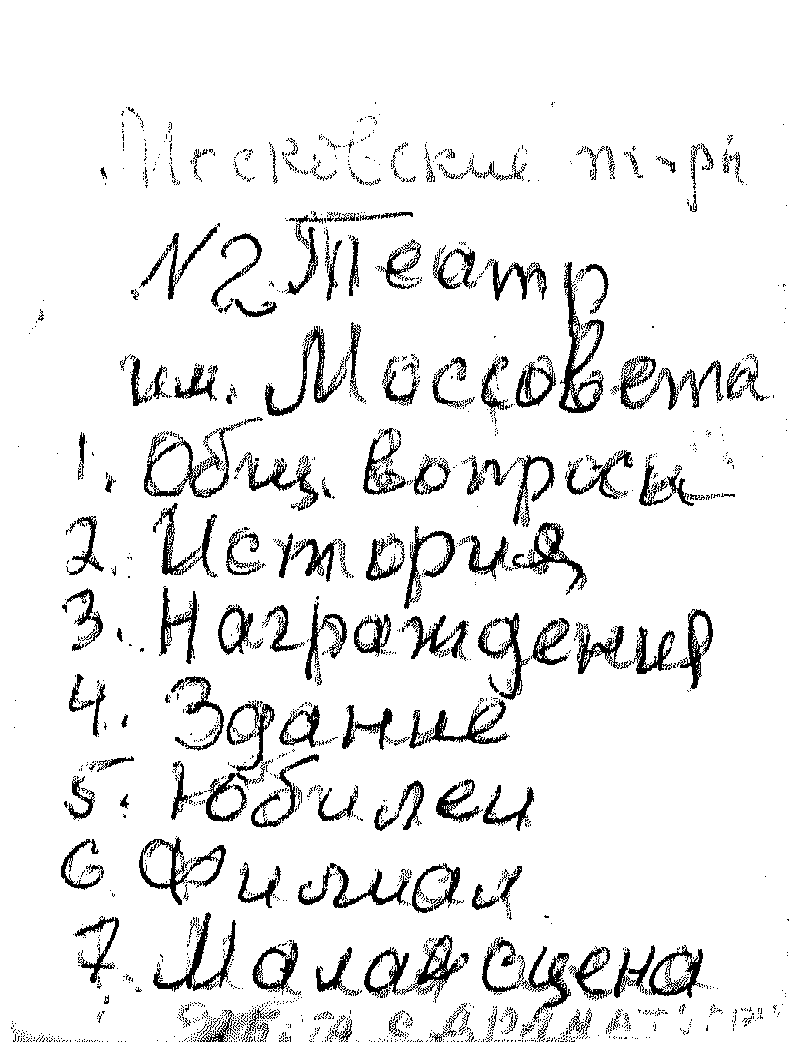 Московские т-ры
N2 Театр
им. Моссовета
1. Общ. вопросы
2. История
3. Награждения
4. Здание
5. Юбилеи
6 Филиал
7. Малая сцена